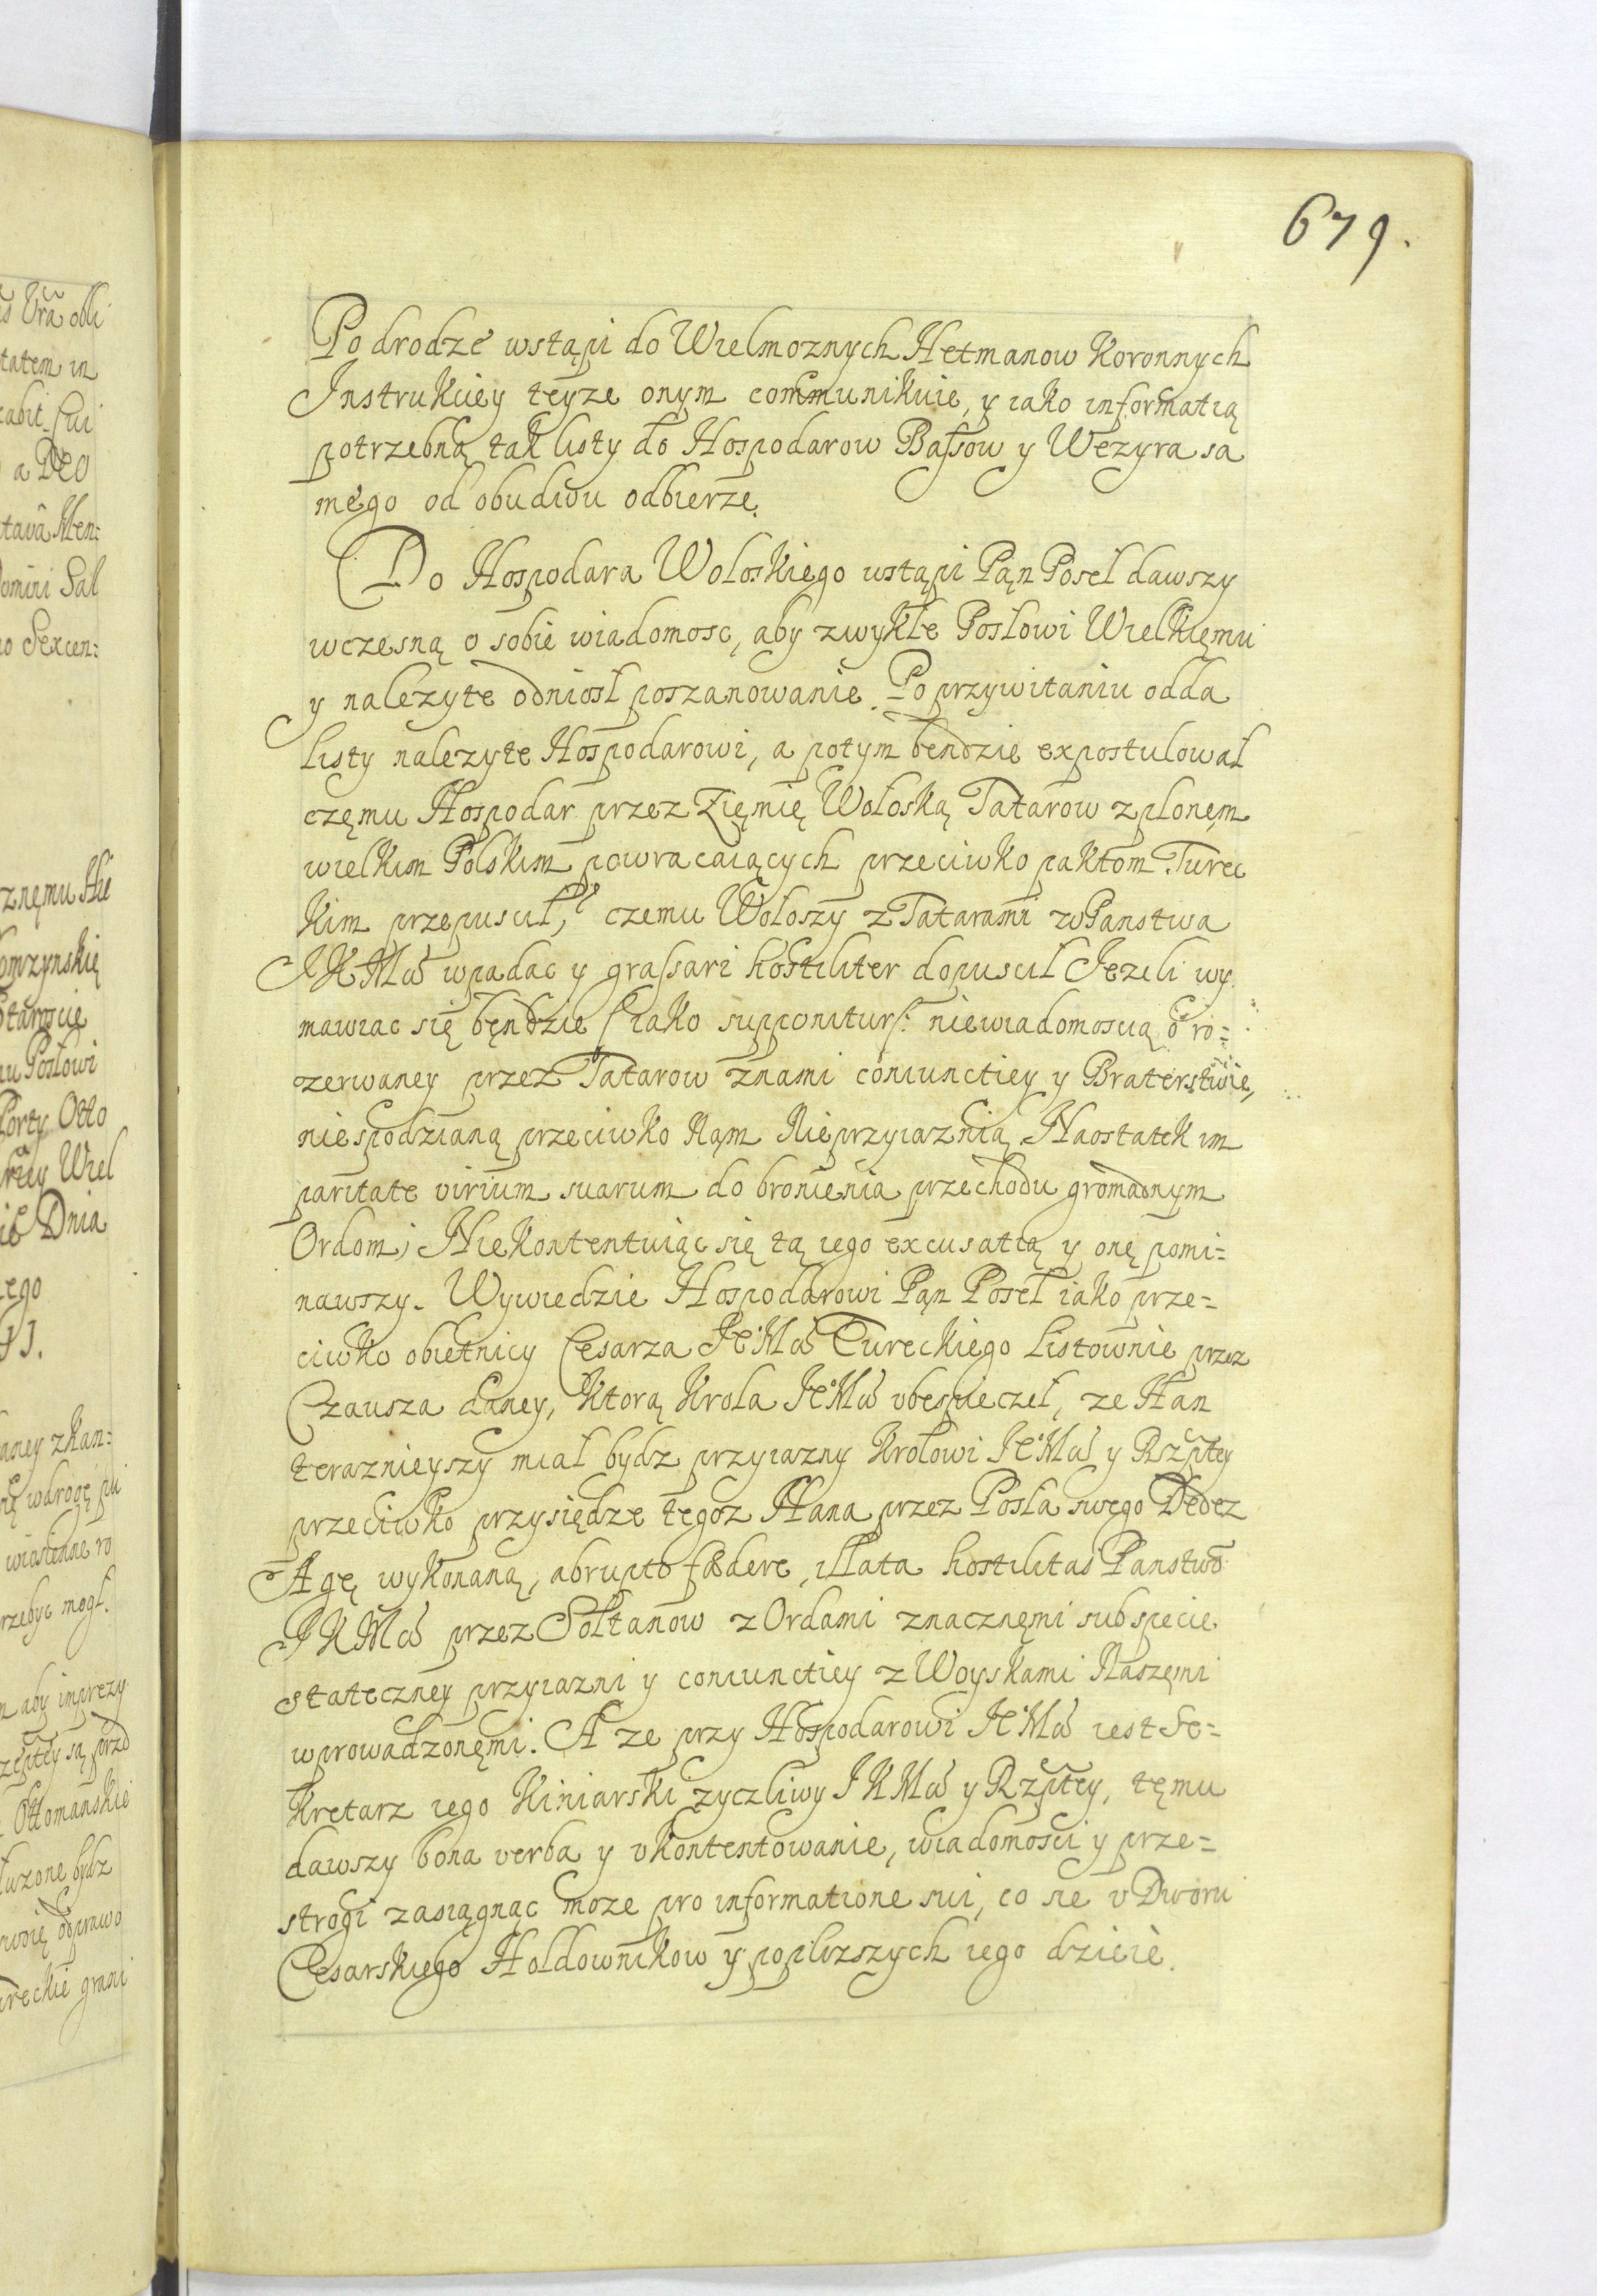 679.
Po drodze wstąpi do Wielmoznych Hetmanow Koronnych
Instrukciey teyze onym communikuie, y iako informatią
potrzebną tak listy do Hospodarow Bassow y Wezyra sa
mego od obudwu odbierze.
Do Hospodara Woloskiego wstąpi Pąn Poseł dawszy
wczesną o sobie wiadomosc, aby zwykłe Posłowi Wielkięmu
y nalezyte odniosł poszanowanie. Po przywitaniu odda
listy nalezyte Hospodarowi, a potym bendzie expostulował
częmu Hospodar przez Zięmię Wołoską Tatarow z plonęm
wielkim Polskim powracaiących przeciwko paktom Turec
kim przepuscił,? czemu Wołoszy z Tatarami w Panstwa
JKMci wpadac y grassari hostiliter dopuscił Jezeli wy
mawiac się bęndzie (iako supponitur(: niewiadomoscią o ro=
zerwaney przez Tatarow znami coniunctiey y Braterstwie,
niespodzianą przeciwko Nąm Nieprzyiaznią Naostatek im
paritate virium suarum do bronienia przechodu gromadnym
Ordom, Niekontentuiąc się tą iego excusatią y onę pomi=
nawszy. Wywiedzie Hospodarowi Pąn Poseł iako prze=
ciwko obietnicy Cesarza JeºMci Tureckiego listownie przez
Czausza daney, ktorą Krola JeºMci vbespieczeł, ze Han
teraznieyszy miał bydz przyiazny Krolowi JeºMci y Rzptey
przeciwko przysiędze tegoz Hana przez Posła swego Dedez
Agę wykonaną, abrupto fædere, illata hostilitas Panstwo
JKMci przez Sołtanow z Ordami znacznęmi sub specie
stateczney przyiazni y coniunctiey z Woyskami Naszęmi
wprowadzonęmi. A ze przy Hospodarowi JeºMci iest Se=
kretarz iego Kiniarski zyczliwy JKMci y Rzptey, tęmu
dawszy bona verba y vkontentowanie, wiadomosci y prze=
strogi zasiągnąc moze pro informatione sui, co sie v Dworu
Cesarskiego Hołdownikow y poblizszych iego dzieie.